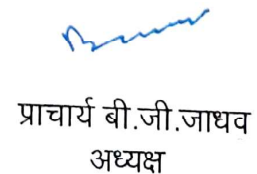 प्राचार्य बी.जी.जाधव
अध्यक्ष